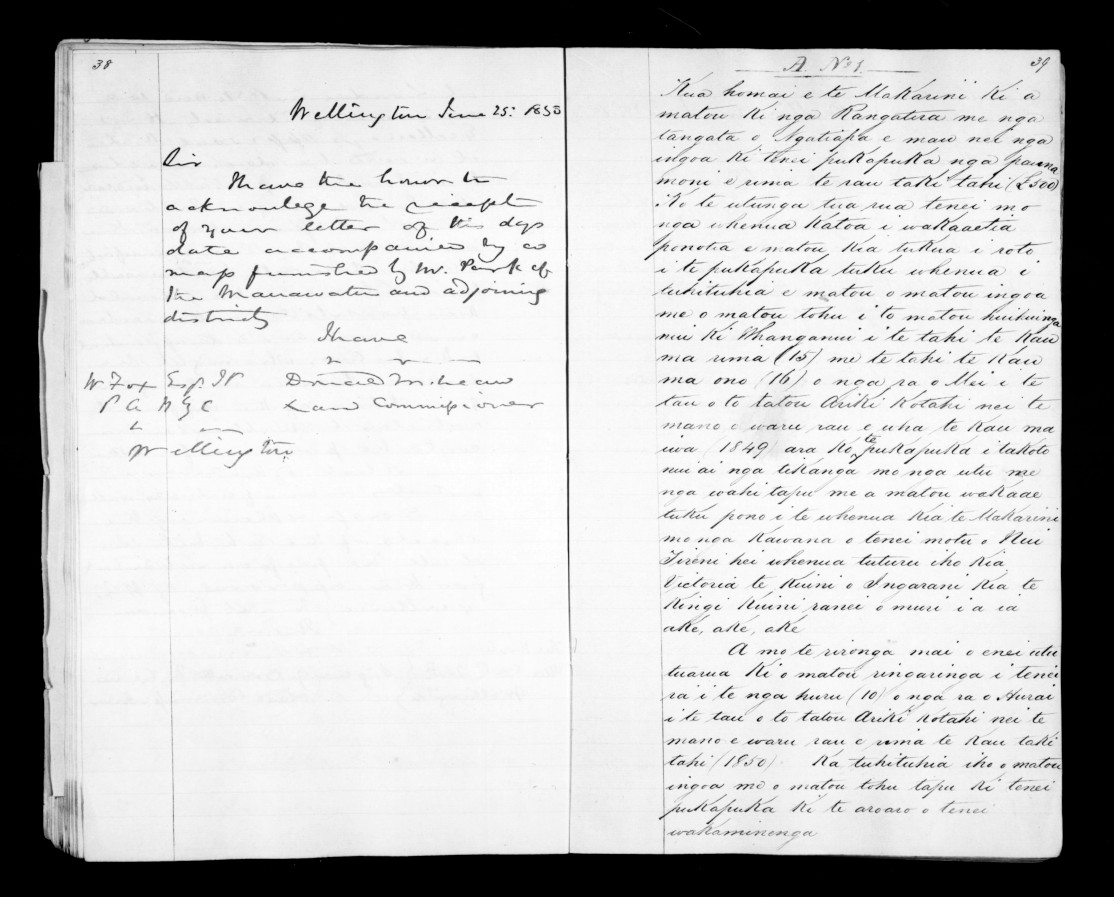 38
Wellington June 25: 1850
Sir
I have the honor to
acknowlege the receipt
of your letter of this days
date accompanied by a
map furnished by Mr. Park of
the Manawatu and adjoining
districts
I have
W Fox Esq. JP
Donald McLean
P A NZC
Land Commissioner
Wellington
39
A No 1
Kua homai e te Makarini ki a
matou ki nga Rangatira me nga
tangata o Ngatiapa e mau nei nga
ingoa ki tenei pukapuka nga pauna
moni e rima te rau taki tahi (£500)
Ko te utunga tua rua tenei mo
nga whenua katoa i wakaaetia
ponotia e matou kia tukua i roto
i te pukapuka tuku whenua i
tuhituhia e matou o matou ingoa
me o matou tohu i to matou huihuinga
nui ki Whanganui i te tahi te kau
ma rima (15) me te tahi te kau
ma ono (16) o nga ra o Mei i te
tau o to tatou Ariki kotahi nei te
mano e waru rau e wha te kau ma
iwa (1849) ara ko te pukapuka i takoto
nui ai nga tikanga mo nga utu me
nga wahi tapu me a matou wakaae
tuku pono i te whenua kia te Makarini
mo nga Kawana o tenei motu o Nui
Tireni hei whenua tuturu iho kia
Victoria te Kuini o Ingarani kia te
Kingi Kuini ranei o muri i a ia
ake, ake, ake
A mo te rironga mai o enei utu
tuarua ki o matou ringaringa i tenei
ra i te nga huru (10) o nga ra o Hurai
i te tau o to tatou Ariki kotahi nei te
mano e waru rau e rima te kau taki
tahi (1850). Ka tuhituhia iho o matou
ingoa me o matou tohu tapu ki tenei
pukapuka ki te aroaro o tenei
wakaminenga